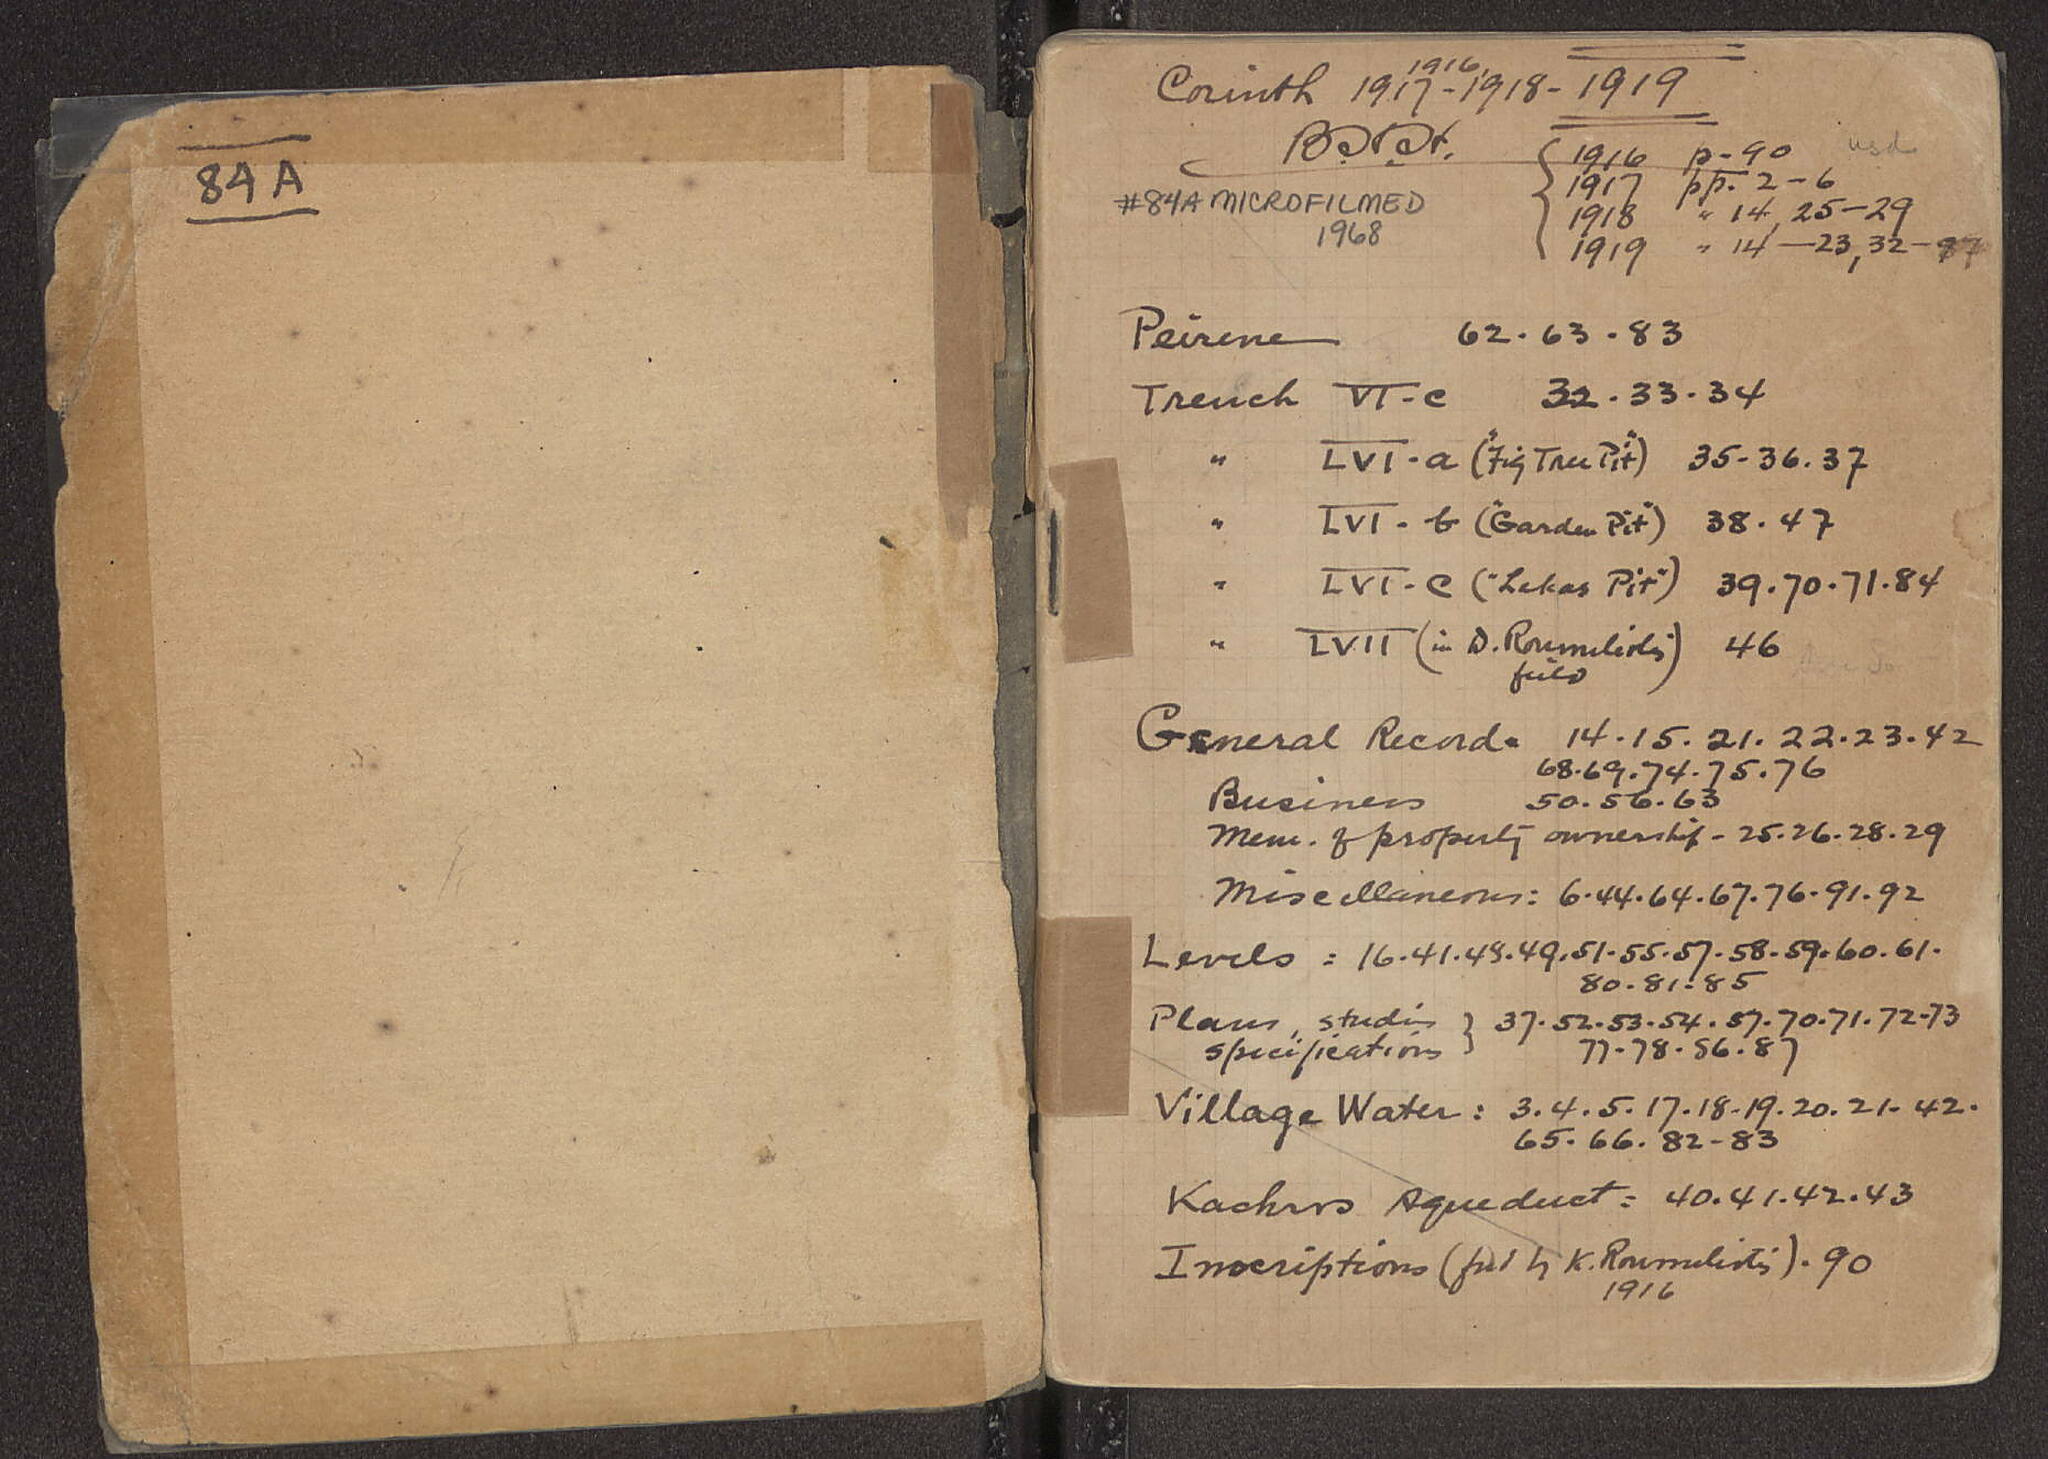 84 A
1916,
Corinth 1917-1918-1919
1916 p-90
1917 pp. 2-6
#84A MICROFILMED
1918 " 14, 25-29
1968
1919 " 14-23, 32-
Peirene 62. 63. 83
Trench VI-c 32. 33. 34
" LVI-a ("Fig Tree Pit") 35-36. 37
" LVI-b ("Garden Pit") 38. 47
" LVI-c ("Lekas Pit") 39. 70. 71. 84
" LVII (in D. Roumeliotis) 46
field
General Record. 14. 15. 21. 22. 23. 42
68. 69. 74. 75. 76
Business 50. 56. 63
Mem. of property ownership - 25. 26. 28. 29
Miscellaneous: 6. 44. 64. 67. 76. 91. 92
Levels: 16. 41. 48. 49. 51. 55. 57. 58. 59. 60. 61.
80. 81. 85
Plans, studies } 37. 52. 53. 54. 57. 70. 71. 72-73
specifications 77-78. 86. 87
Village Water: 3. 4. 5. 17. 18-19. 20. 21- 42.
65. 66. 82-83
Kachros Aqueduct: 40. 41. 42. 43
Inscriptions (fnd by K. Roumeliotis). 90
1916